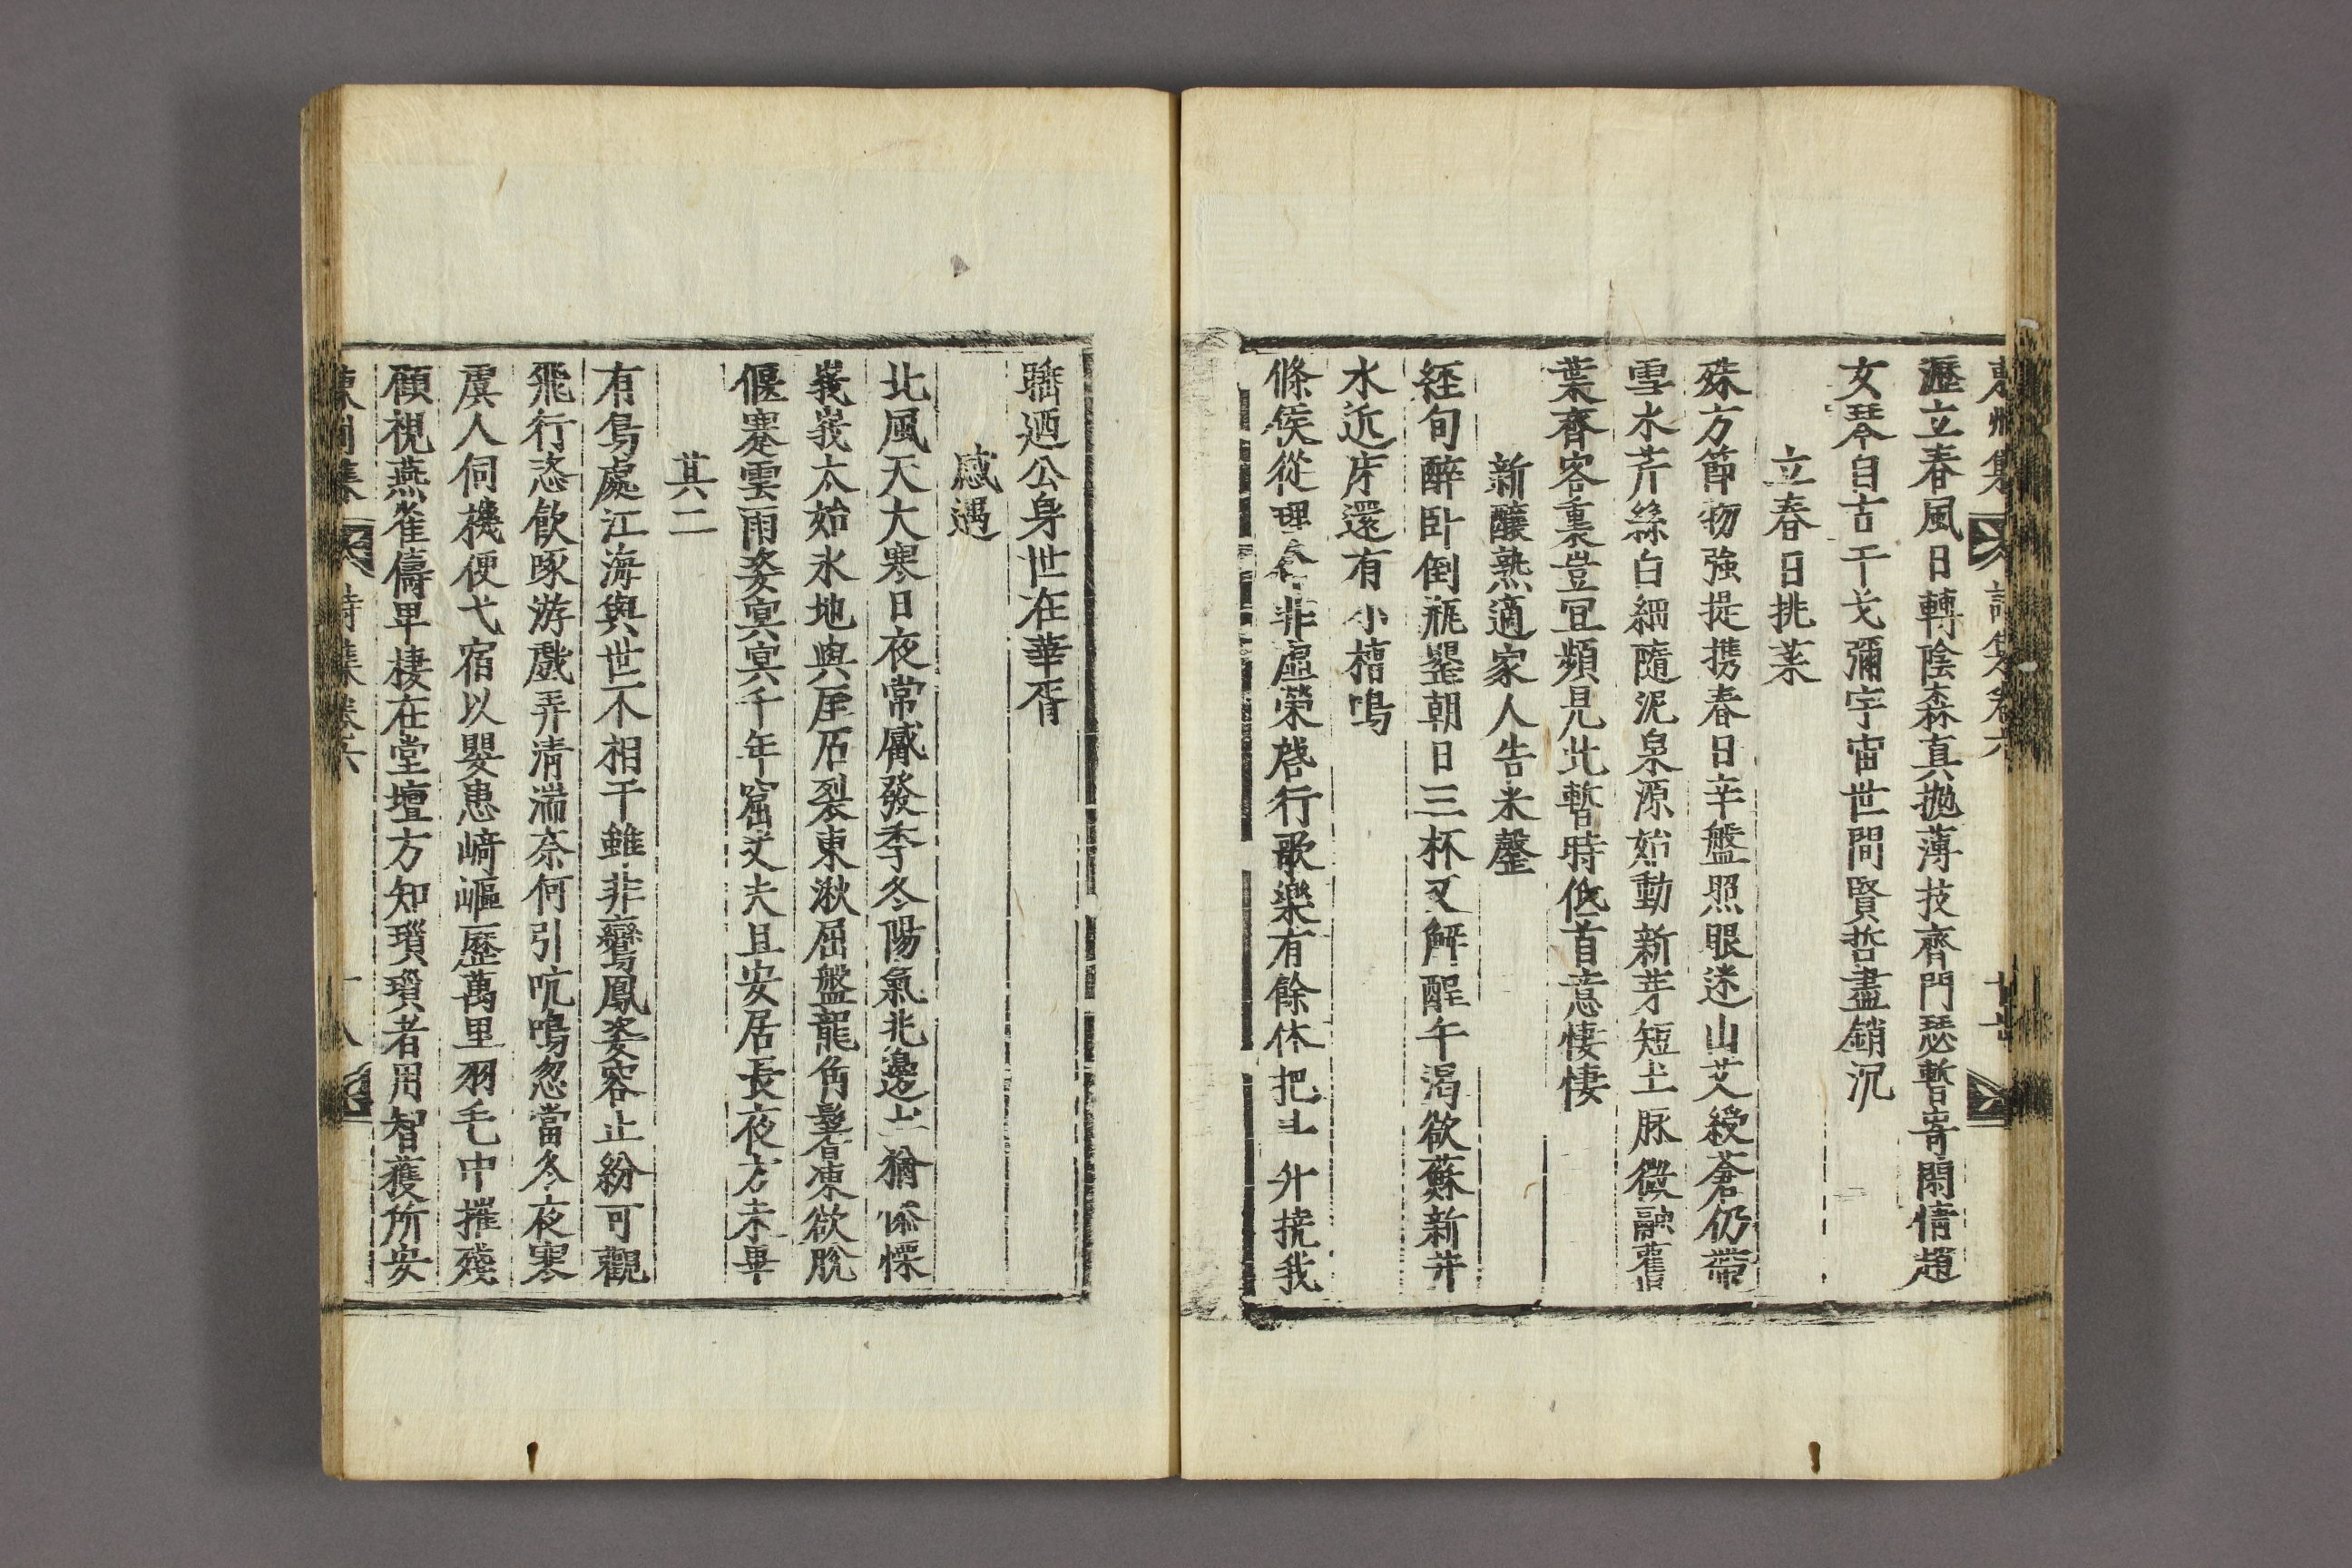 東州集 詩集卷六 十七
瀝立春風日轉陰森真抛薄技齊門瑟暫寄閑情趙
女琴自古干戈彌宇宙世間賢哲盡銷沉
立春日挑菜
殊方節物強提携春日辛盤照眼迷山艾綬蒼仍帶
雪水芹絲白細隨泥泉源始動新芽短土脉微融舊
葉齊客裏豈宜頻見此暫時低首意悽悽
新釀熟適家人告米罄
經旬醉卧倒瓶罌朝日三杯又解酲午渴欲蘇新井
水近床還有小槽鳴
條侯從理餐非虛榮啓行歌樂有餘休把斗升撓我
躋迺公身世在華胥
感遇
北風天大寒日夜常觱發季冬陽氣兆邊上猶慘慄
峩峩太始氷地與厓石裂東湫屈盤龍角鬐凍欲脫
偃蹇雲雨姿冥冥千年窟丈夫且安居長夜方未畢
其二
有鳥處江海與世不相干雖非鸞鳳姿容止紛可觀
飛行恣飮啄游戲弄清湍奈何引吭鳴忽當冬夜寒
虞人伺機便弋宿以嬰患崎嶇歷萬里羽毛中摧殘
顧視燕雀儔卑棲在堂壇方知瑣瑣者用智獲所安
東州集 詩集卷六 十八